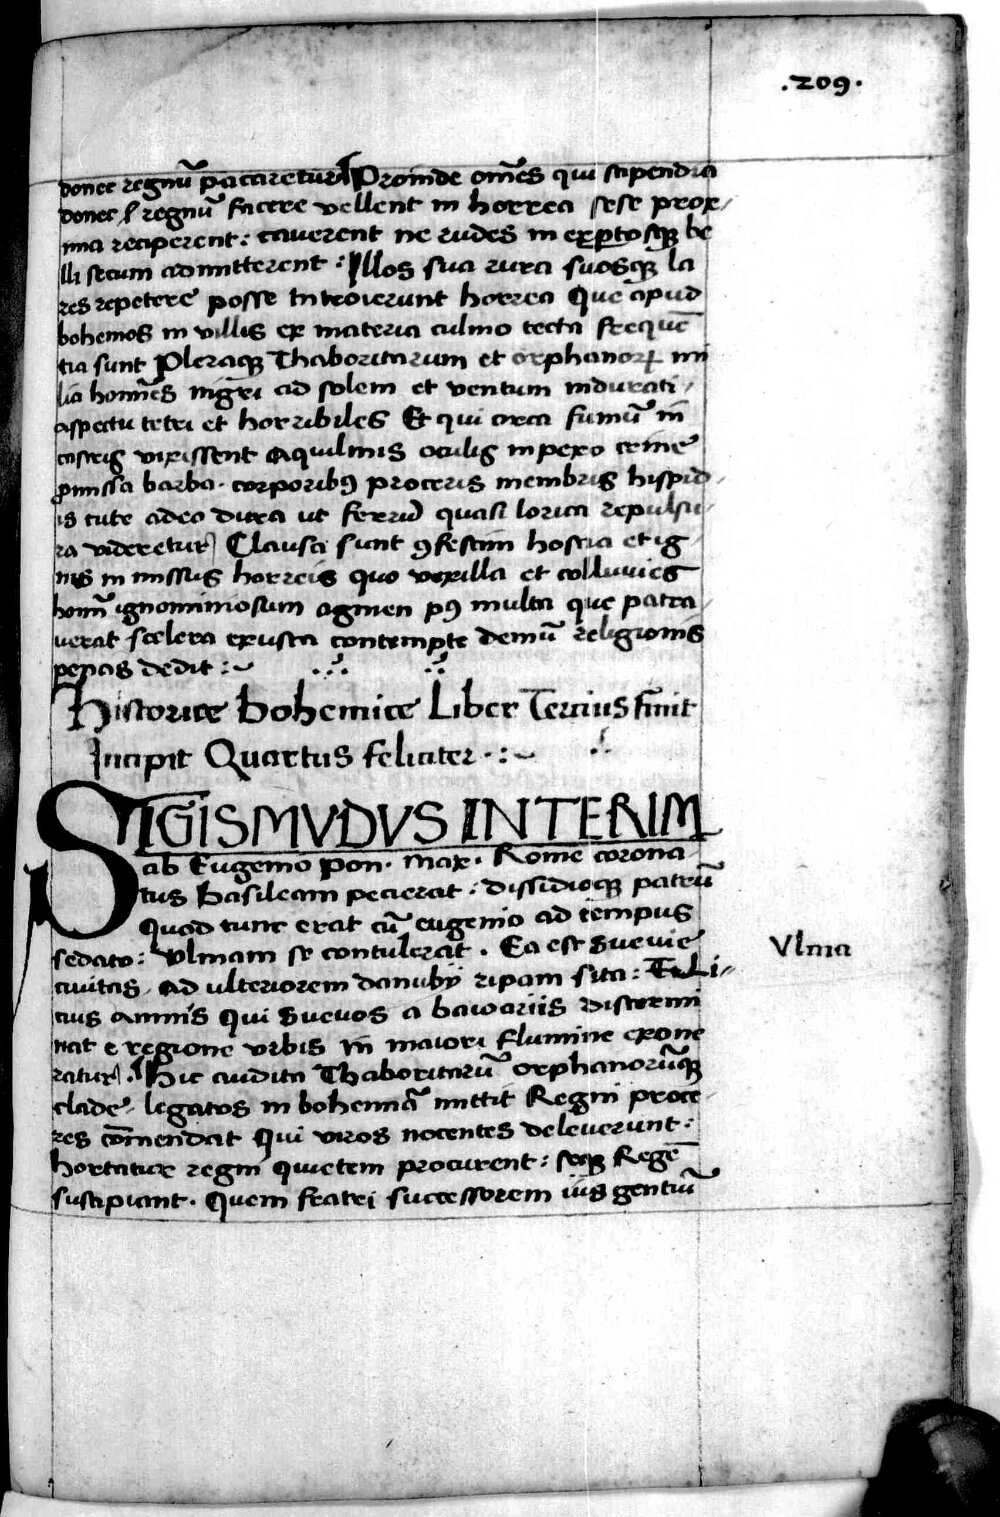 .209.
donec regnū pacaretur Proinde om̄es qui stipendia
donec regnū facere vellent in horrea sese prox-
ima reciperent: caverent ne rudes in expertosqꝫ be
lli secum admitterent: Illos sua rura suosqꝫ la
res repetere posse Introierunt horrea Que apud
bohemos in villis ex materia culmo tecta frequē
tia sunt Pleraqꝫ Thaboritarum et orphanoꝝ mi
lia homīes nigri ad solem et ventum indurati-
aspectu tetri et horribiles Et qui circa fumū in
castris vixissent aquilinis oculis inpexo crine
ꝓmissa barba. corporibꝰ proceris membris hispid-
is cute adeo dura ut ferrū quasi lorica repulsu-
ra videretur Clausa sunt ꝯfestim hostia et ig-
nis in missus horreis quo vexilla et colluvies
homī ignominiosum agmen pꝰ multa que patra-
verat scelera exusta contempte demū religionis
penas dedit :~
Historice bohemice Liber Tercius finit
Incipit Quartus feliciter .:~
SIGISMVDVS INTERIM
ab Eugenio pon. max. Rome corona-
tus Basileam pecierat: dissidioqꝫ patrū
Quod tunc erat cū eugenio ad tempus
sedato: Vlmam se contulerat. Ea est Suevie
Vlma
civitas. ad ulteriorem danubÿ ripam sita:
cius amnis Qui Suevos a baioariis discrimi
nat e regione vrbis in maiori flumine exone
ratur. Hic audita Thaboritarū orphanorūqꝫ
clade. legatos in bohemiā mittit Regni proce-
res com̄endat Qui viros nocentes deleverunt:
hortatur regni quietem procurent: seqꝫ Regē
suscipiant. Quem fratri successorem ius gentiū